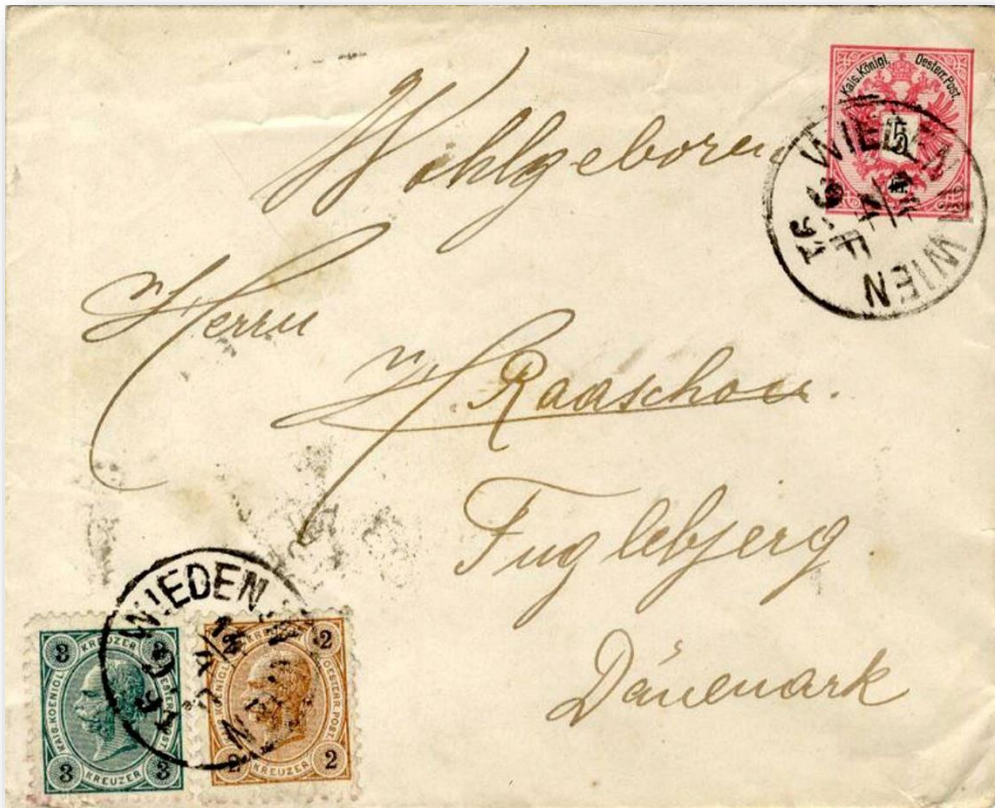 Kais. Königl. Oesterr. Post.
5
WIEDEN IN WIEN
91
F
Wohlgeboren
Herrn
H Raaschou.
Fuglebjerg.
Dänemark
WIEDEN
3 3
KREUZER
KAIS. KOENIGL.
3 3
KREUZER
2 2
KAIS. KOENIGL. OESTERR. POST.
2 2
KREUZER